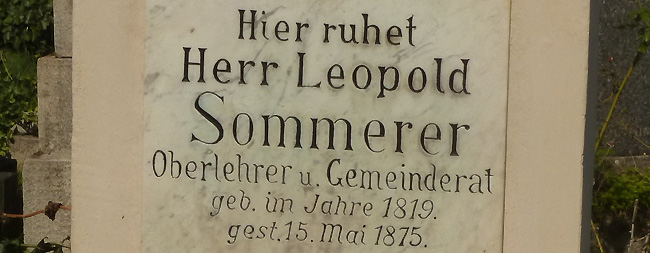 Hier ruhet
Herr Leopold
Sommerer
Oberlehrer u. Gemeinderat
geb. im Jahre 1819.
gest. 15. Mai 1875.